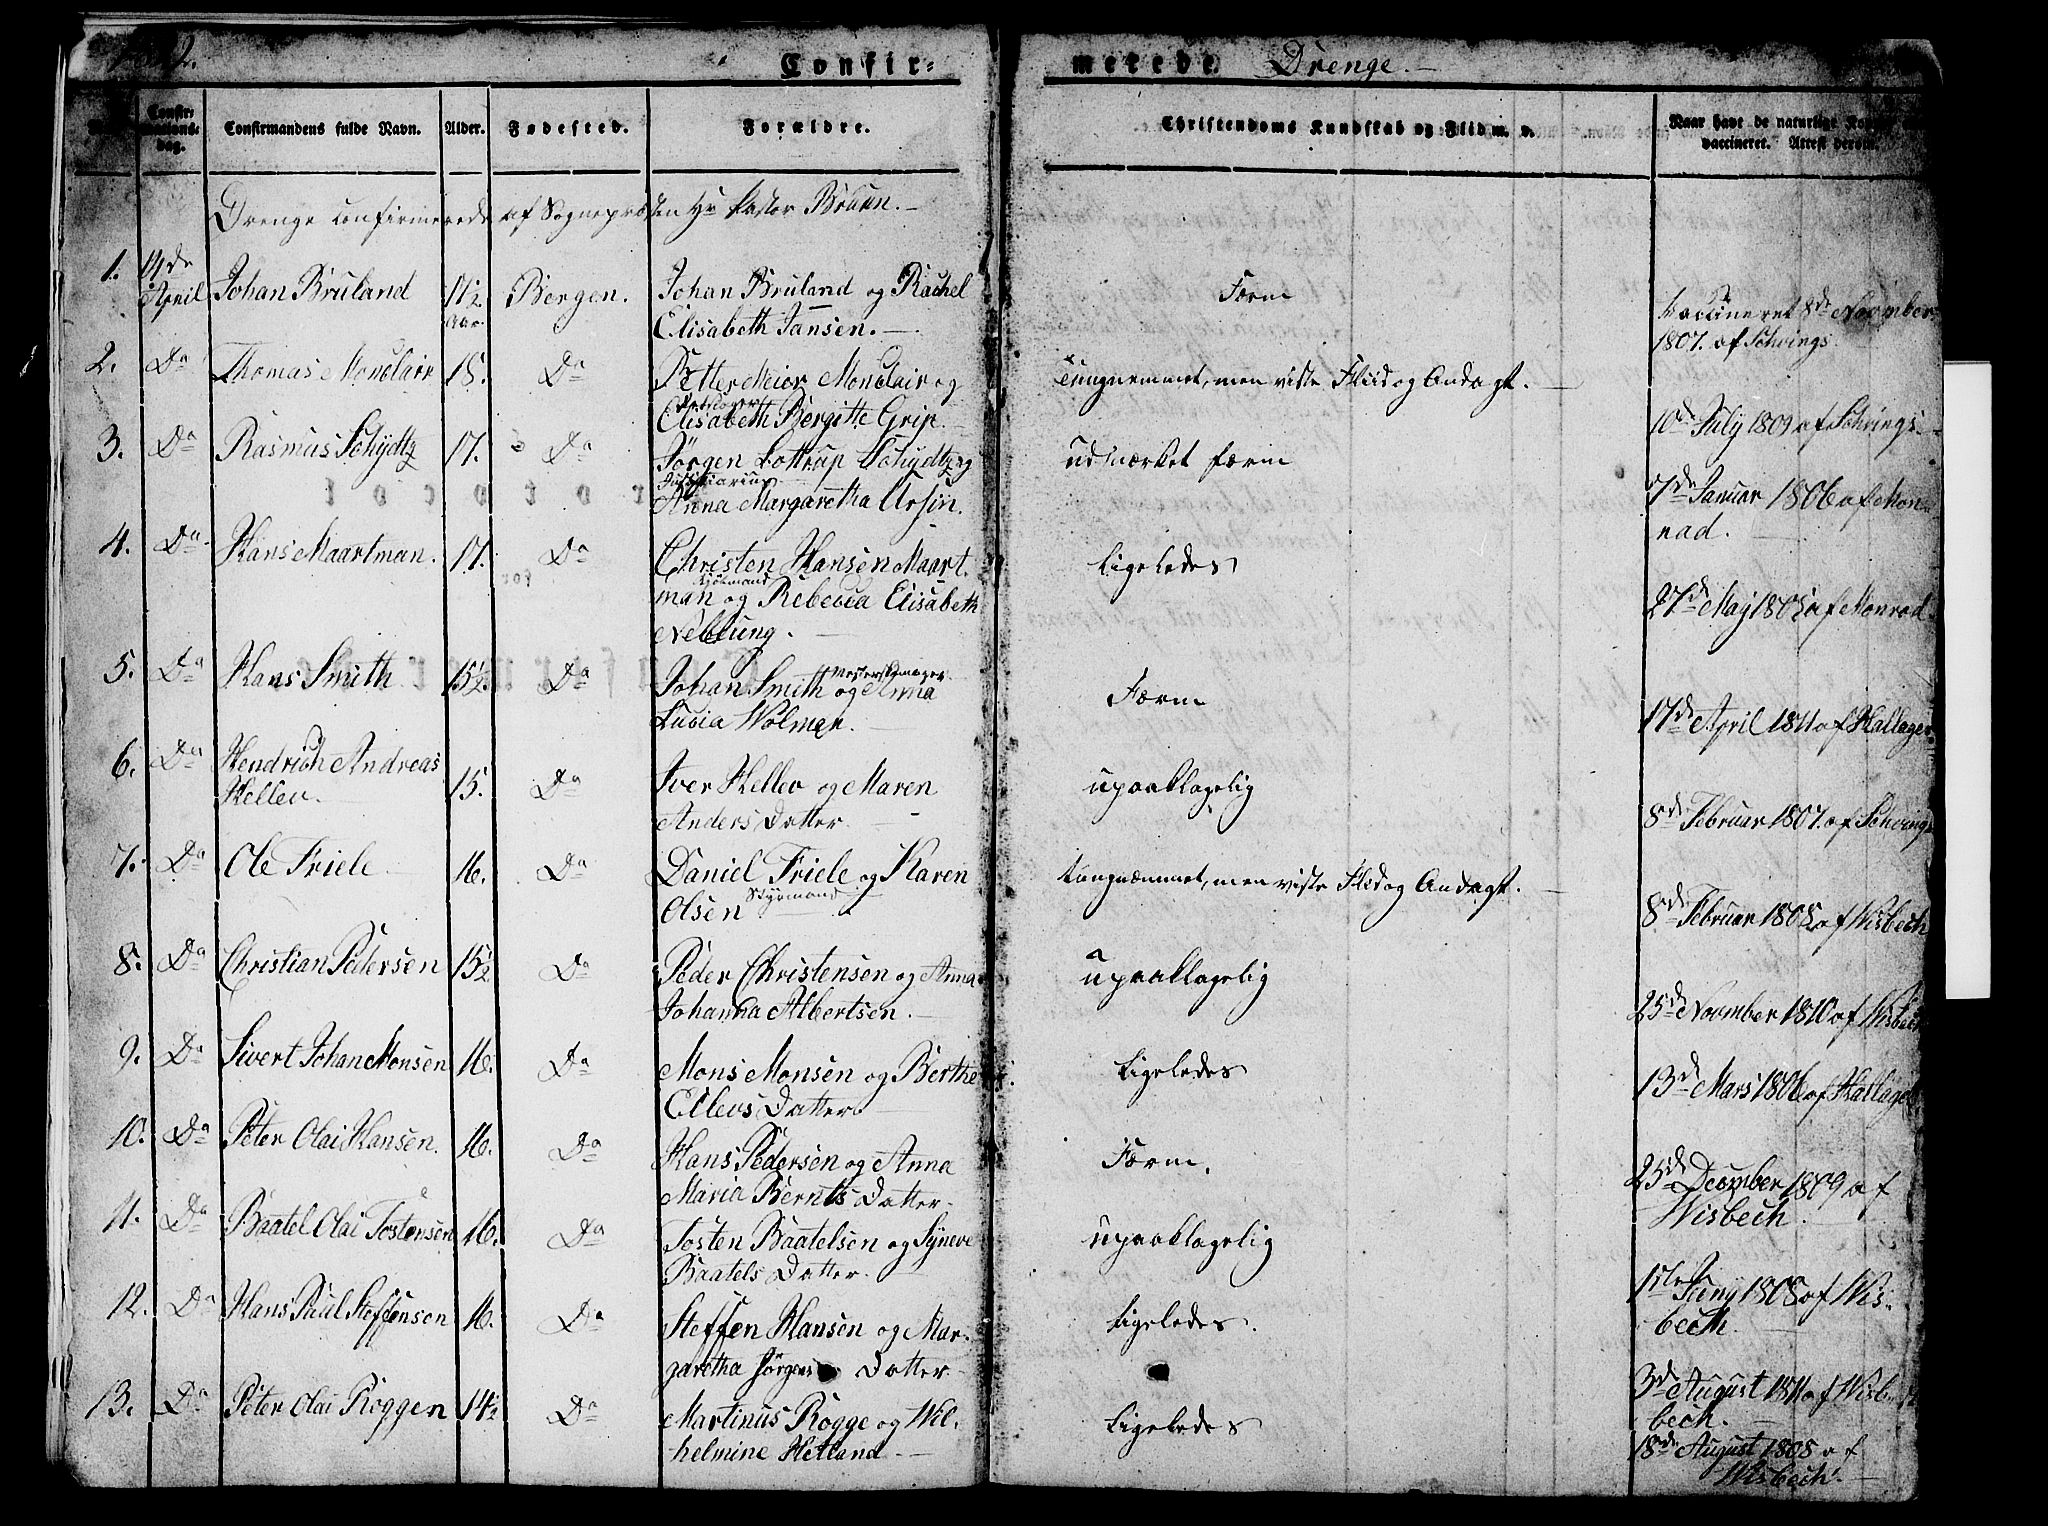 Confirmerede Drenge.
Confirmations-dag.
Confirmandens fulde Navn.
Alder.
Fødested.
Forældre.
Christendoms Kundskab og Flid m. v.
Naar have de naturlige
vaccineret. Attest derom.
Drenge confirmerede af Sognepræsten Hr Pastor Bruun.
1. 14de April Johan Bruland 17½ Aar. Bergen. Johan Bruland og Rachel
Elisabeth Jansen.
Færm
Vaccineret 8de November
1807. af Schrings
2. Da Thomas Monclair 18. Da Petter Meier Monclair og
Elisabeth Bergitte Grip.
Tungnemmet, men viste Fliid og Andagt.
10de July 1809 af Schrings.
3. Da Rasmus Schydtz 17. Da Jørgen Lottrup Schydtz og
Justitiarius
Anna Margaretha Ursin.
udmærket færm
7de Januar 1806 af Mon-
rad.
4. Da Hans Maartman. 17. Da Christen Hansen Maart-
man og Rebecca Elisabeth
Neblung.
Ligeledes
27de Maj 1805 af Monrad
5. Da Hans Smith 15½. Da Johan Smith og Anna
Lucia Wolmer.
Færm
17de April 1811 af Hallager
6. Da Hendrich Andreas
Kellev. 15. Da Iver Kellev og Maren
Anders Datter
upaaklagelig
8de Februar 1807. af Schrings
7. Da Ole Friele 16. Da Daniel Friele og Karen
Olsen Styrmand
tungnæmmet, men viste Flid og Andagt.
8de Februar 1805 af Wisbech
8. Da Christian Pedersen 15½ Da Peder Christensen og Anna
Johanna Albertsen.
upaaklagelig
25de November 1810 af Wisbech
9. Da Sivert Johan Monsen 16. Da Mons Monsen og Berthe
Ellevs Datter
Ligeledes
13de Mars 1806 af Hallager
10. Da Peter Olai Hansen. 16. Da Hans Pedersen og Anna
Maria Bernts Datter
Færm.
25de December 1809 af
Wisbech
11. Da Baatel Olai Tostensen 16. Da Tosten Baatelsen og Syneve
Baatels Datter.
upaaklagelig
1ste Juny 1805 af Wis-
bech.
12. Da Hans Paul Steffensen 16. Da Steffen Hansen og Mar-
garetha Jørgens Datter
Ligeledes.
3de August 1811 af Wis-
bech.
13. Da Peter Olai Roggen 14½ Da Martinus Rogge og Wil-
helmine Hetland
Ligeledes
18de August 1808 af
Wisbech.